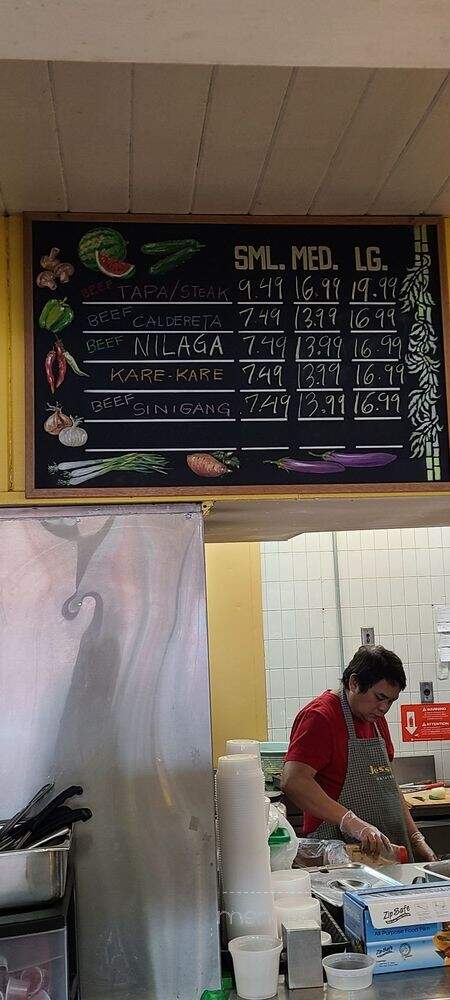 SML. MED. LG.
BEEF TAPA/STEAK 9.49 16.99 19.99
BEEF CALDERETA 7.49 13.99 16.99
BEEF NILAGA 7.49 13.99 16.99
KARE-KARE 7.49 13.99 16.99
BEEF SINIGANG 7.49 13.99 16.99
WARNING
ATTENTION
ZipSafe
All Purpose Food Film